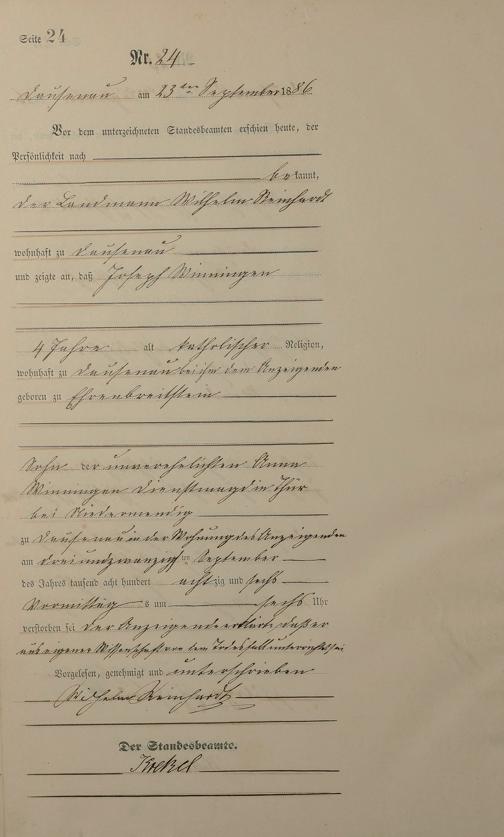 Seite 24
Nr. 24
Dausenau am 23ten September 1886
Vor dem unterzeichneten Standesbeamten erschien heute, der
Persönlichkeit nach
bekannt,
der Landmann Wilhelm Reinhardt
wohnhaft zu Dausenau
und zeigte an, daß Joseph Winningen
4 Jahre alt katholischer Religion,
wohnhaft zu Dausenau bei ihm dem Anzeigenden
geboren zu Ehrenbreitstein
Sohn der unverehelichten Anna
Winningen Dienstmagd in Thür
bei Niedermendig
zu Dausenau in der Wohnung des Anzeigenden
am dreiundzwanzigsten September
des Jahres tausend acht hundert achtzig und sechs
Vormittags um sechs Uhr
verstorben sei der Anzeigende erklärte daß er
aus eigener Wissenschaft von dem Todesfall unterrichtet sei
Vorgelesen, genehmigt und unterschrieben
Wilhelm Reinhardt
Der Standesbeamte.